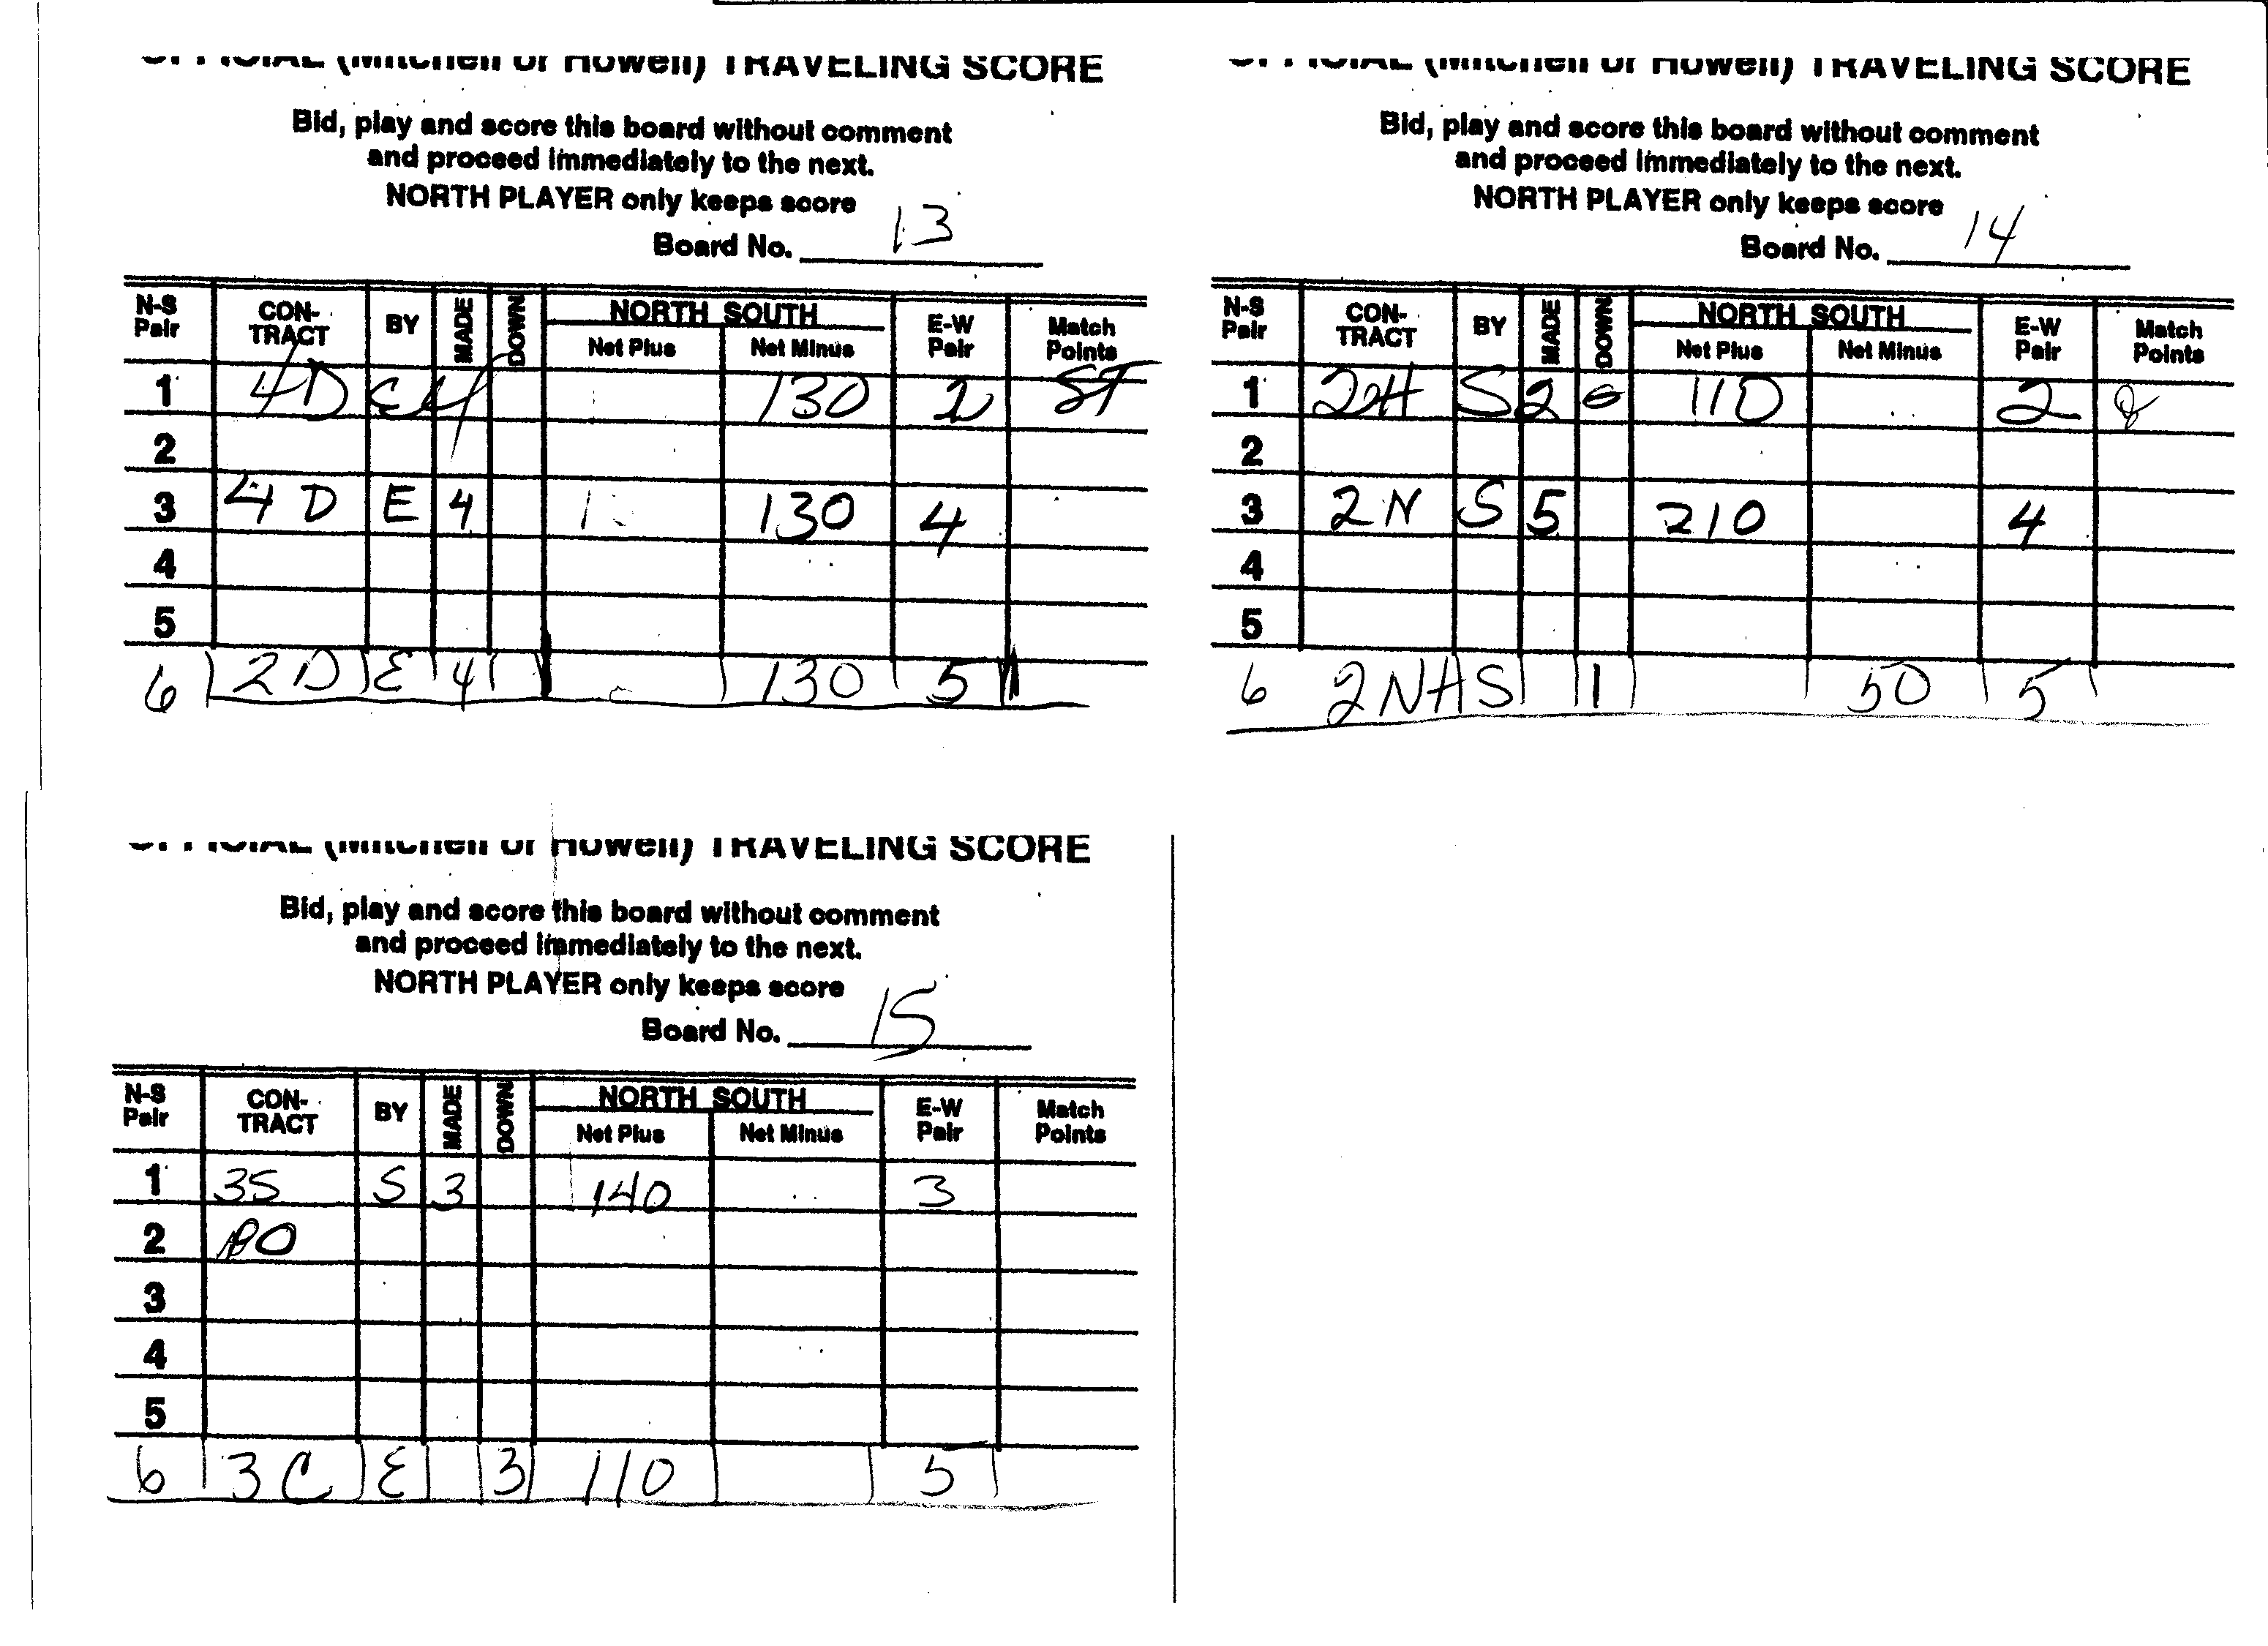 OFFICIAL (Mitchell or Howell) TRAVELING SCORE
Bid, play and score this board without comment
and proceed immediately to the next.
NORTH PLAYER only keeps score
Board No. 13
N-S Pair CON-TRACT BY MADE DOWN NORTH SOUTH Net Plus Net Minus E-W Pair Match Points
1 4D E 4 130 2
2
3 4D E 4 130 4
4
5
6 2D E 4 130 5
OFFICIAL (Mitchell or Howell) TRAVELING SCORE
Bid, play and score this board without comment
and proceed immediately to the next.
NORTH PLAYER only keeps score
Board No. 14
N-S Pair CON-TRACT BY MADE DOWN NORTH SOUTH Net Plus Net Minus E-W Pair Match Points
1 2H S 2 110 2
2
3 2N S 5 210 4
4
5
6 2N S 1 50 5
OFFICIAL (Mitchell or Howell) TRAVELING SCORE
Bid, play and score this board without comment
and proceed immediately to the next.
NORTH PLAYER only keeps score
Board No. 15
N-S Pair CON-TRACT BY MADE DOWN NORTH SOUTH Net Plus Net Minus E-W Pair Match Points
1 3S S 3 140 3
2 PO
3
4
5
6 3C E 3 110 5